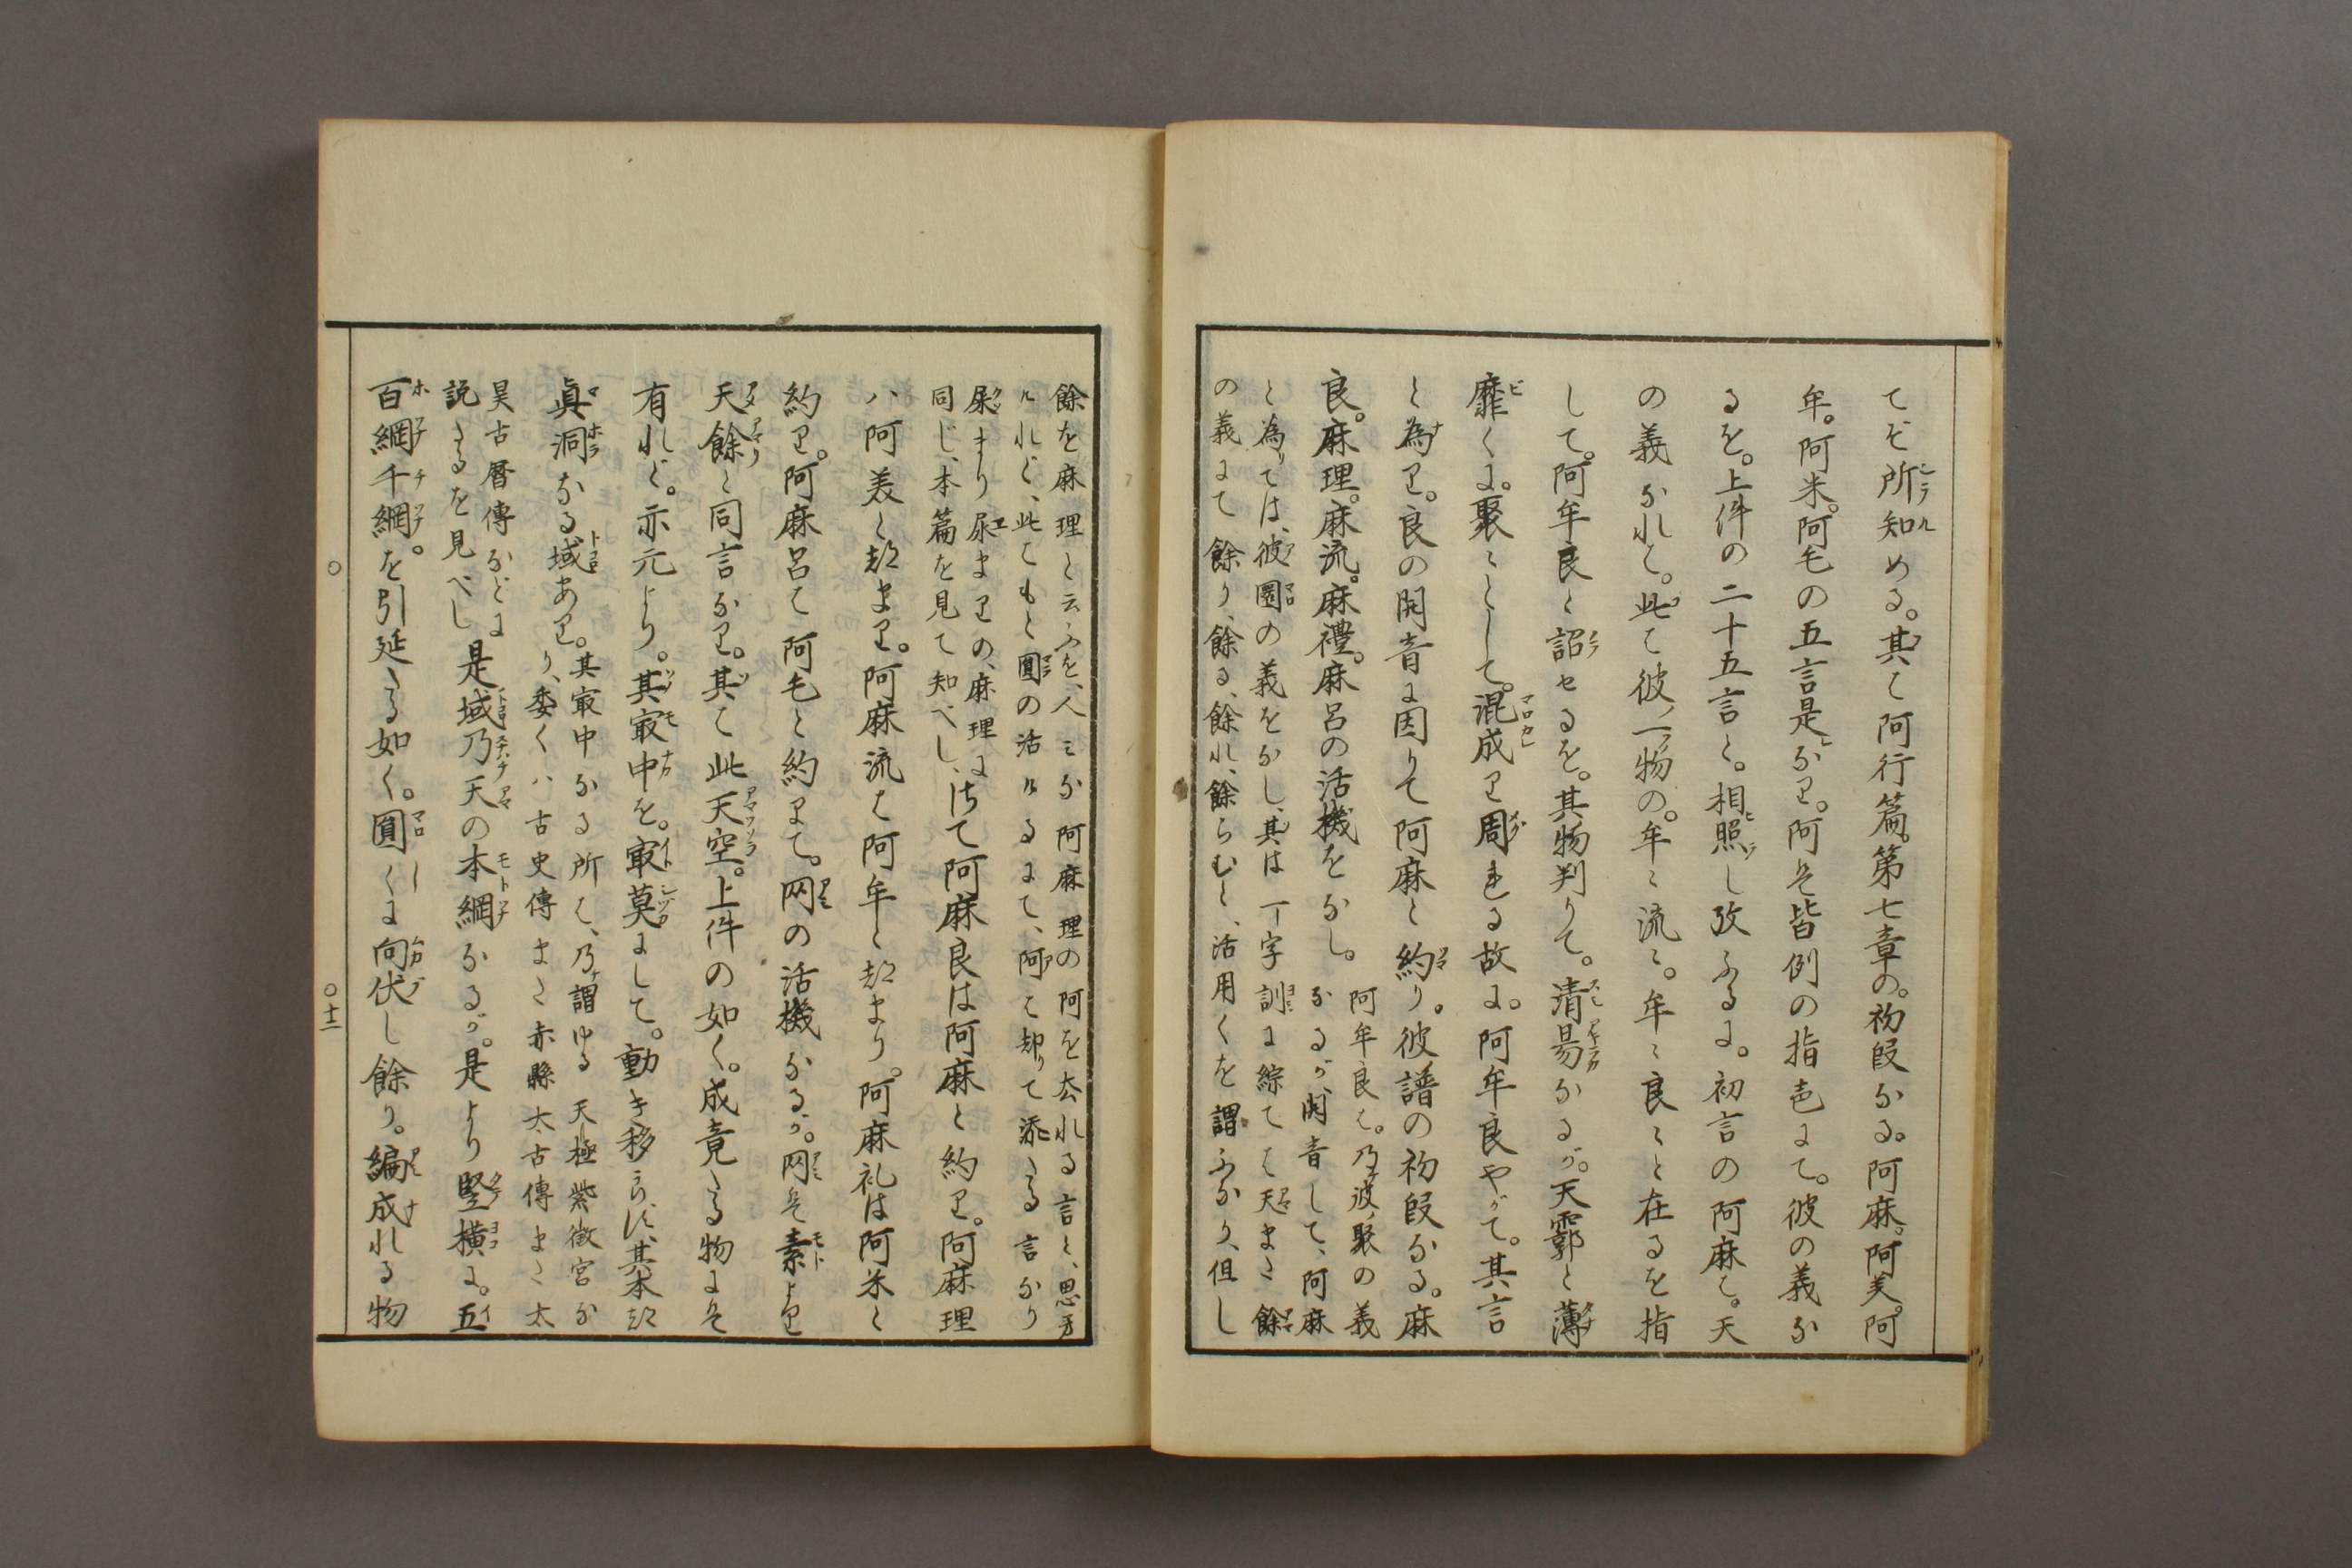 てぞ所知める。其は阿行篇。第七章の。初段なる。阿麻。阿美。阿
牟。阿米。阿毛の五言是なり。阿は皆例の指色にて。彼の義な
るを。上件の二十五言と。相照し攷ふるに。初言の阿麻は。天
の義なれば。此は彼ノ一物の。牟ミ流ミ。牟ミ良ミと在るを指
して。阿牟良と詔せるを。其物判りて。清昜なるが。天霩と薄
靡くに。聚ミとして。混成り周れる故に。阿牟良やがて。其言
と為り。良の開音に因りて阿麻と約り。彼譜の初段なる。麻
良。麻理。麻流。麻禮。麻呂の活機をなし。
阿牟良は。乃彼ノ聚の義
なるが、開音して、阿麻
と為りては、彼圏の義をなし、其は一字訓に綜ては天また餘
の義にて餘り、餘る、餘れ、餘らむと、活用くを謂ふなり、但し
餘を麻理と云ふを、人ミな阿麻理の阿を去れる言と、思ふ
ルれど、此はもと圓の活けるにて、阿は却りて添たる言なり
屎まり尿まりの、麻理に
同じ、本篇を見て知べし、
さて阿麻良は阿麻と約り。阿麻理
ハ阿美と約まり。阿麻流は阿牟と約まり。阿麻礼は阿米と
約り。阿麻呂は阿毛と約りて。网の活機なるが。网は素より
天餘と同言なり。其は此天空。上件の如く。成竟たる物には
有れど。亦元より。其最中を。最莫にして。動き移らず、其本
眞洞なる域あり。
其最中なる所は、乃謂ゆる天極紫微宮な
り、委くハ古史傳また赤縣太古傳また太
昊古暦傳などに
説たるを見べし
是域乃天の本綱なるが。是より竪横に。五
百綱千綱。を引延たる如く。圓くに向伏し餘り。編成れる物
〇
〇十二